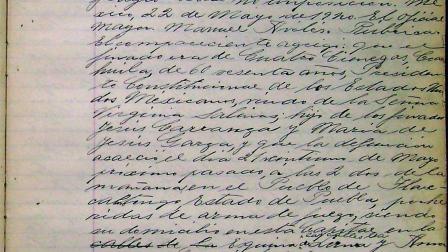 xico, 22 de Mayo de 1920. El Oficial
Mayor Manuel Aviles. Rubricas
El compareciente agregó: que el
finado era de Cuatro Cienegas, Coa
huila, de 60 sesenta años, Presiden
te Constitucional de los Estados Uni
dos Mexicanos, viudo de la Señora
Virginia Salinas; hijo de los finados
Jesús Carranza y Maria de
Jesús Garza y que la defuncion
acaeció el dia 21 veintiuno de Mayo
próximo pasado, a las 2 dos de la
mañana en el Pueblo de Tlax
calantongo Estado de Puebla, por he
ridas de arma de fuego, siendo
su domicilio en esta
calles de la Esquina Lerma y